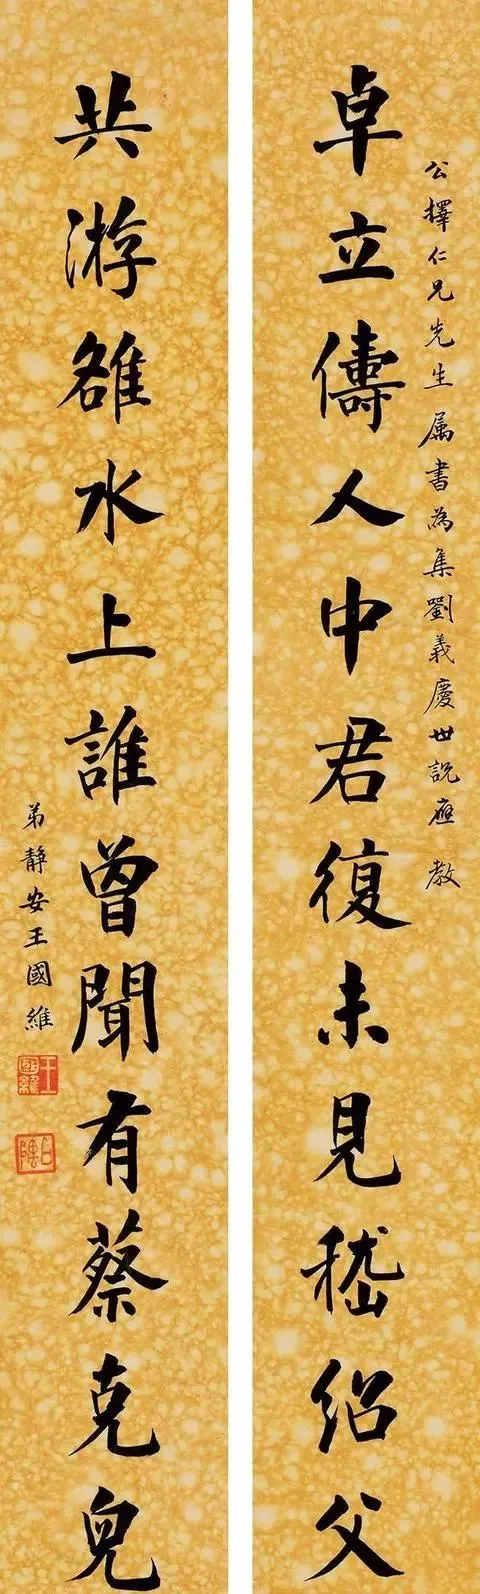 公擇仁兄先生属書為集劉義慶世說應教
卓立儔人中君復未見嵇紹父
共游雒水上誰曾聞有蔡克兒
弟靜安王國維
王國維